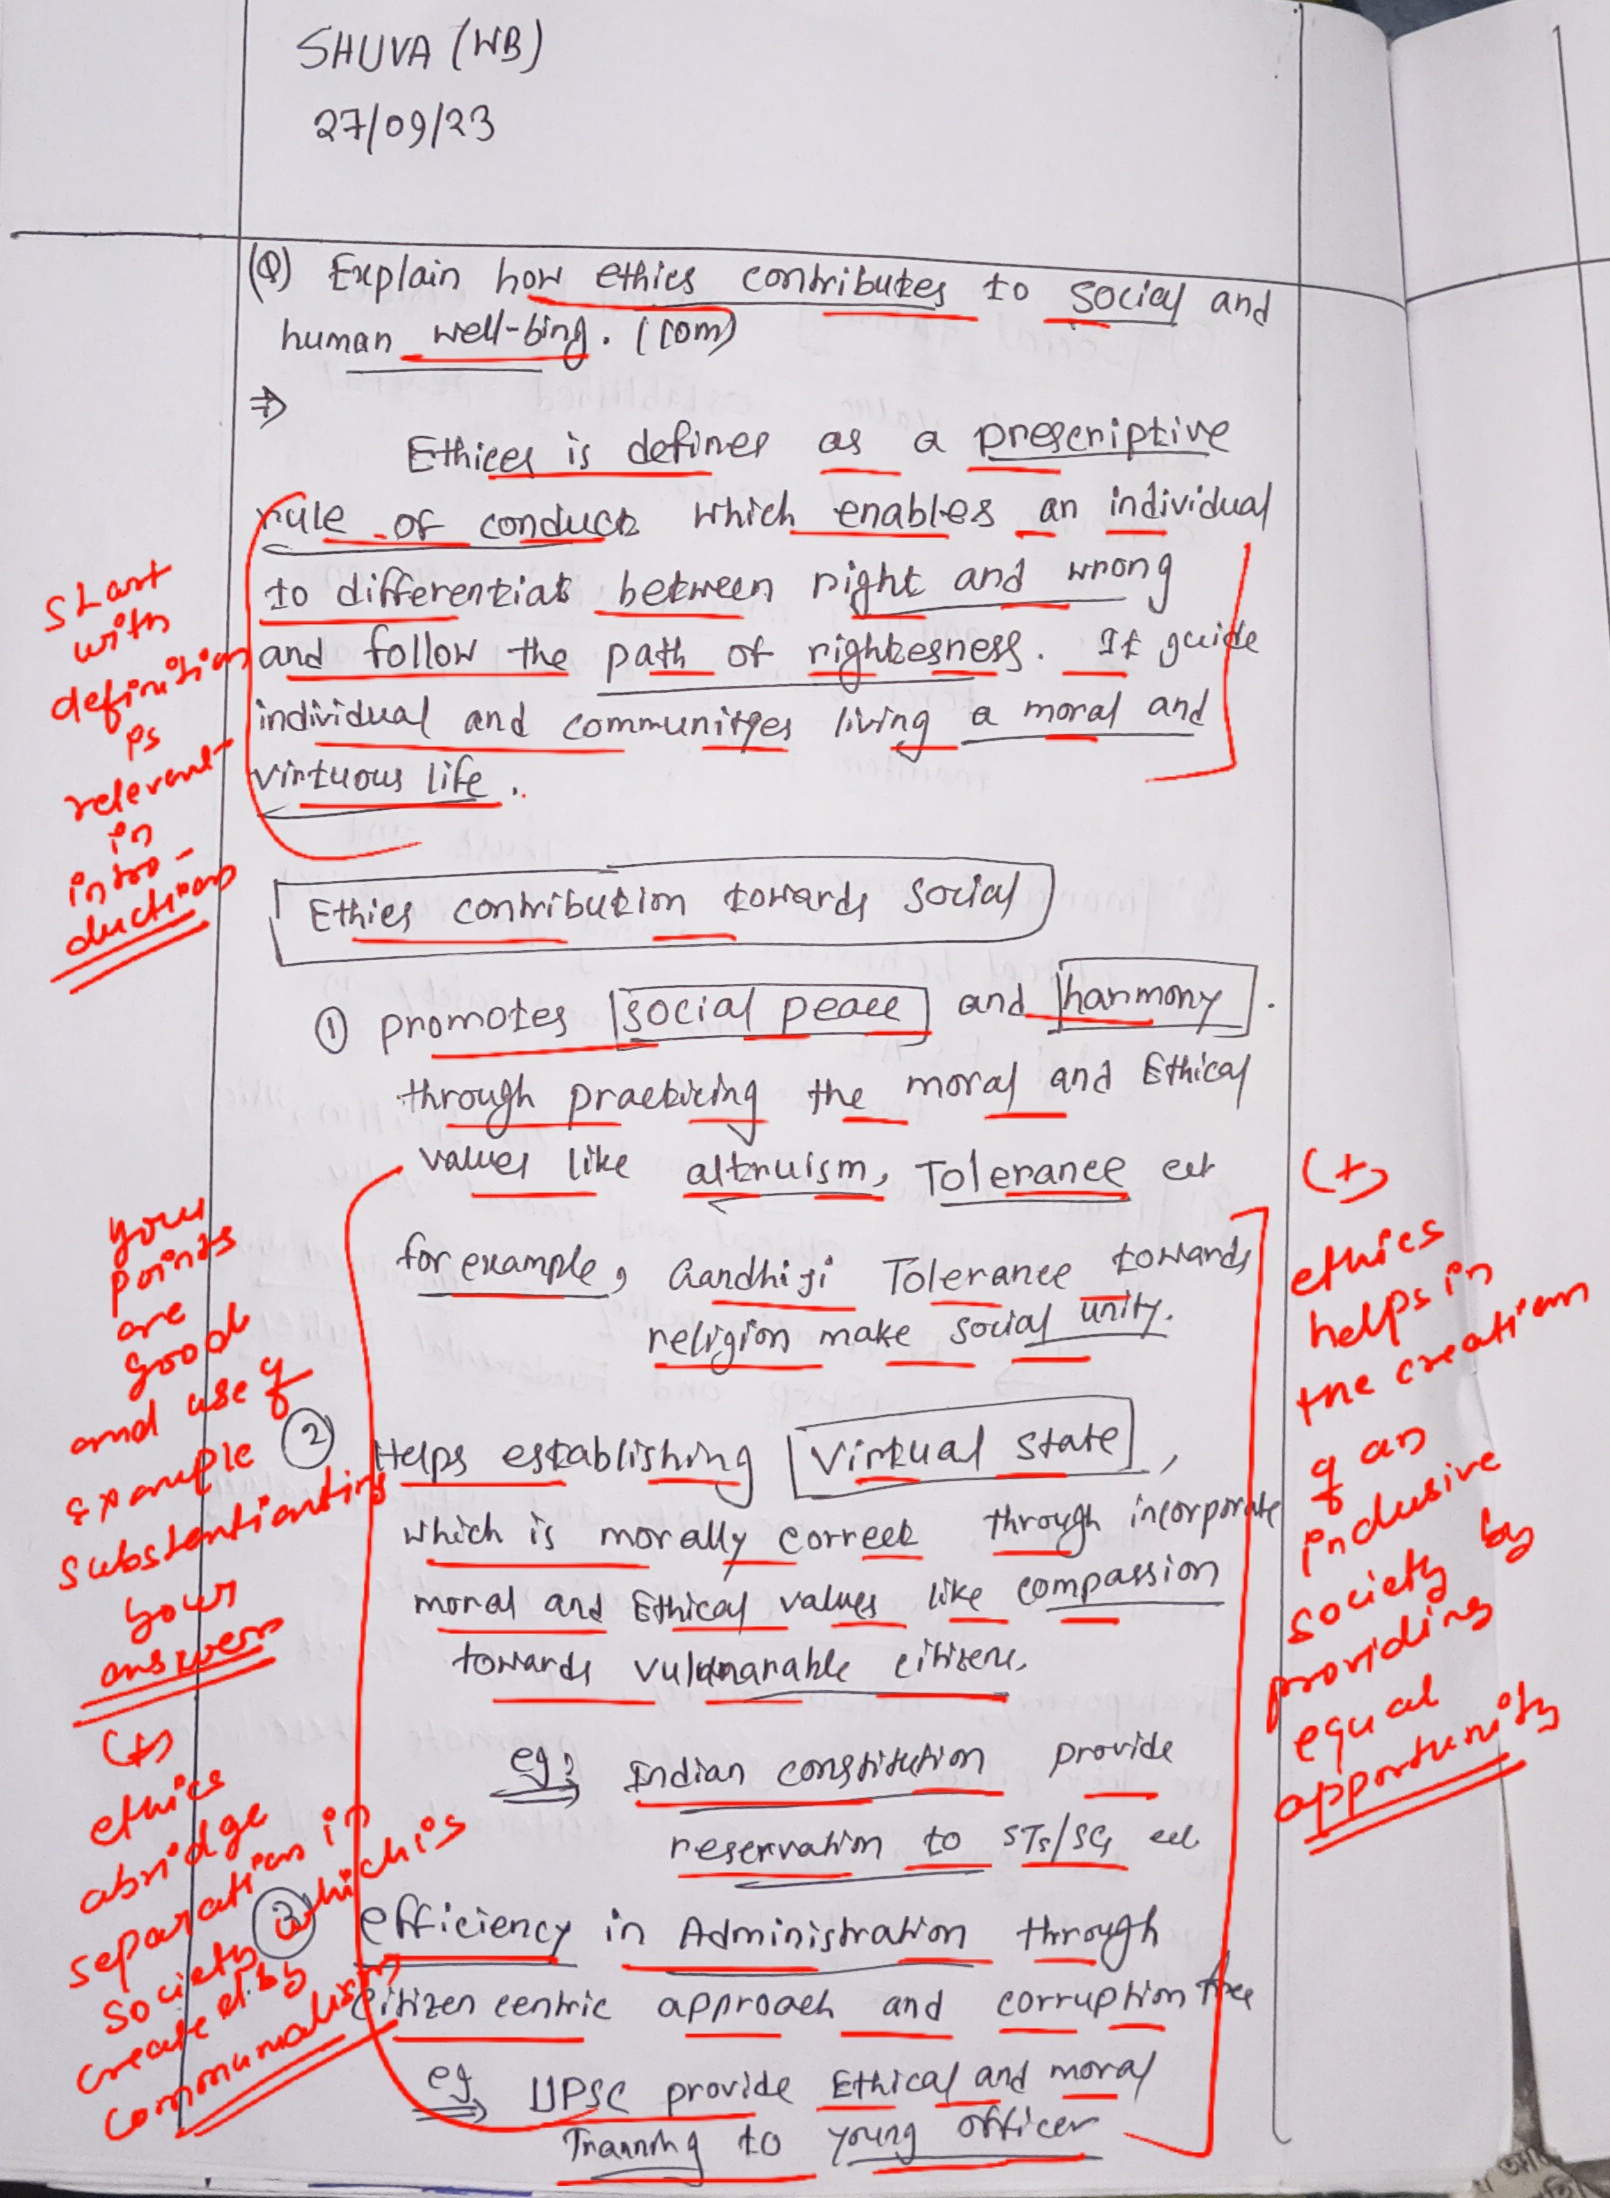 SHUVA (WB)
27/09/23
(Q) Explain how ethics contributes to social and
human well-bing. (10m)
⇒
Ethices is defines as a prescriptive
rule of conduct which enables an individual
to differentiat between right and wrong
and follow the path of rightesness. It guide
individual and communityes living a moral and
virtuous life.
start
with
definition
is
relevant
in
intro-
duction
Ethics contribution towards social
① promotes social peace and harmony.
through practicing the moral and Ethical
values like altruism, Tolerance ect
for example, Gandhiji Tolerance towards
religion make social unity.
② Helps establishing Virtual state,
which is morally correct through incorporate
moral and Ethical values like compassion
towards citizens.
eg: Indian constitution provide
reservation to STs/SCs ect
③ efficiency in Administration through
citizen centric approach and corruption free
eg UPSC provide Ethical and moral
Tranning to young officer
your
points
are
good
and use of
example
substentianting
your
answer
(+)
ethics
abridge
separation in
society which is
created by
communalism
(+)
ethics
helps in
the creation
of an
inclusive
society by
providing
equal
apportunity